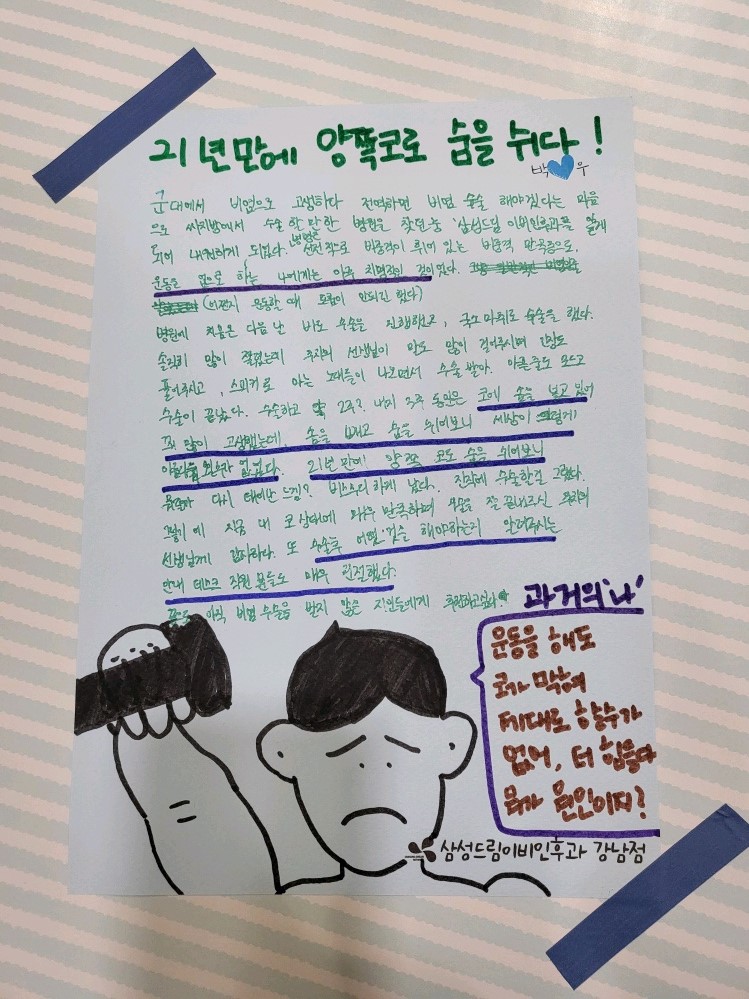 21년만에 양쪽코로 숨을 쉬다!
박 우
군대에서 비염으로 고생하다 전역하면 비염 수술 해야겠다는 마음
으로 싸지방에서 수술 할 만한 병원을 찾던 중 '삼성드림 이비인후과'를 알게
되어 내원하게 되었다. 선천적으로 비중격이 휘어 있는 비중격 만곡증으로,
운동을 업으로 하는 나에게는 아주 치명적인 것이었다.
(어쩐지 운동할 때 호흡이 안되긴 했다)
병원에 처음온 다음 날 바로 수술을 진행했고, 국소마취로 수술을 했다.
솔직히 많이 쫄렸는데 주치의 선생님이 말도 많이 걸어주시며 긴장도
풀어주시고, 스피커로 아는 노래들이 나오면서 수술 받아. 아픈줄도 모르고
수술이 끝났다. 수술하고 약 2주? 내지 3주 동안은 코에 솜을 넣고 있어
꽤 많이 고생했는데, 솜을 빼고 숨을 쉬어보니 세상이 이렇게
아름다울 수가 없었다. 21년만에 양쪽 코로 숨을 쉬어보니
다시 태어난 느낌? 비스무리 하게 났다. 진작에 수술할걸 그랬다.
그렇기에 지금 내 코 상태에 매우 만족하며 수술을 잘 끝내주신 주치의
선생님께 감사하다. 또 수술후 어떤 것을 해야하는지 알려주시는
안내 데스크 직원 분들도 매우 친절했다.
아직 비염 수술을 받지 않은 지인들에게 추천하고싶다.
과거의 '나'
운동을 해도
코가 막혀
제대로 할수가
없어, 더 힘들다
뭐가 원인이지?
삼성드림이비인후과 강남점